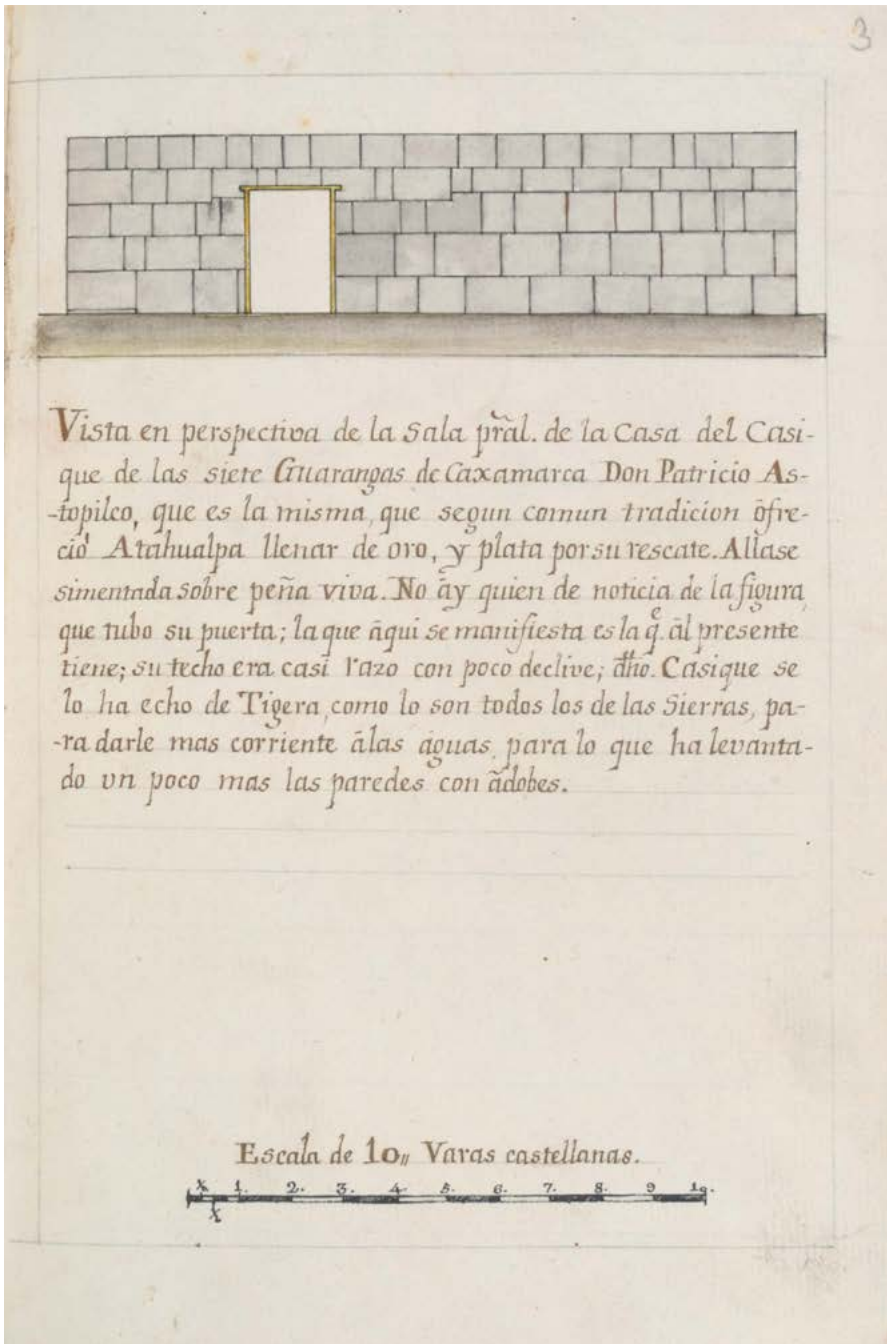 3
Vista en perspectiva de la Sala prãl. de la Casa del Casi-
que de las siete Guarangas de Caxamarca Don Patricio As-
-topilco, que es la misma, que segun comun tradicion ôfre-
ció Atahualpa llenar de oro, y plata por su rescate. Allase
simentada sobre peña viva. No ãy quien de noticia de la figura,
que tubo su puerta; la que âqui se manifiesta es la q.^e âl presente
tiene; su techo era casi razo con poco declive; dho. Casique se
lo ha echo de Tigera, como lo son todos los de las Sierras, pa-
-ra darle mas corriente âlas aguas, para lo que ha levanta-
do un poco mas las paredes con ãdobes.
Escala de 10,, Varas castellanas.
1. 2. 3. 4. 5. 6. 7. 8. 9 10.